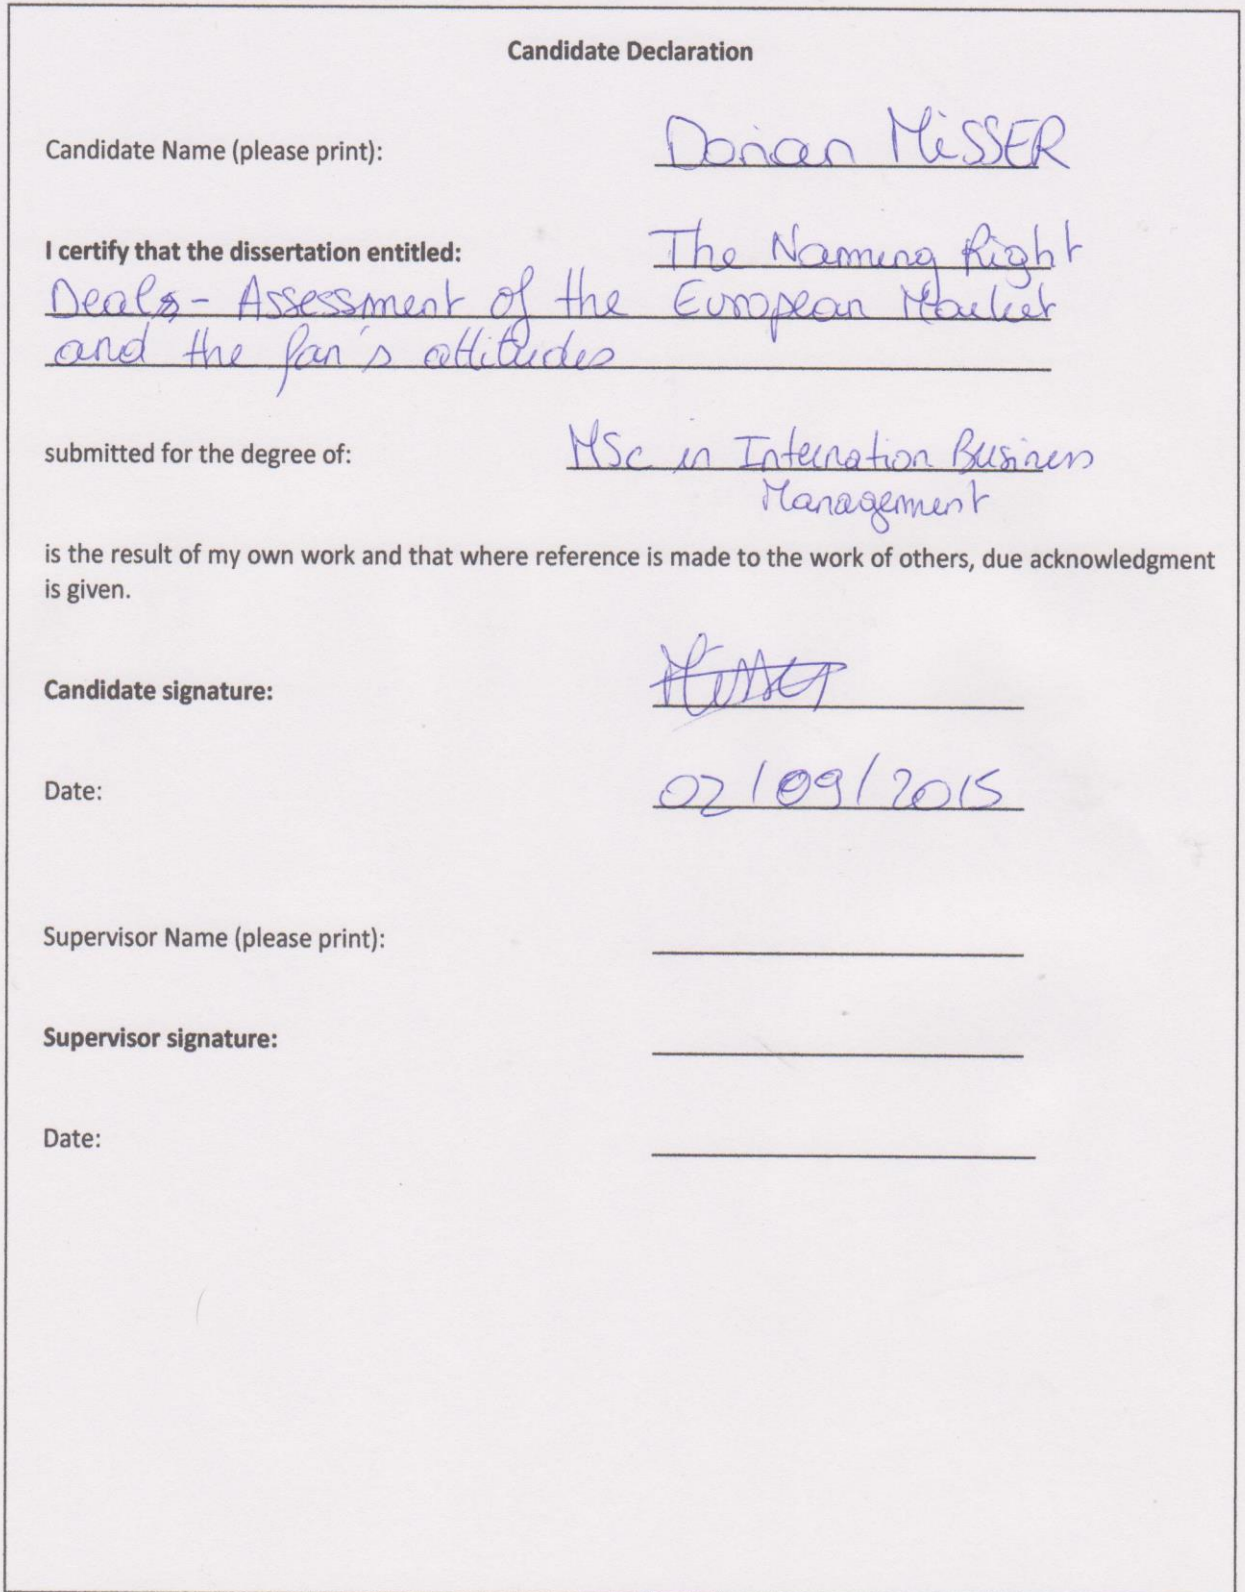 Candidate Declaration
Candidate Name (please print): Dorian MiSSER
I certify that the dissertation entitled: The Naming Right
Deals - Assessment of the European Market
and the fan's attitudes
submitted for the degree of: MSc in Internation Business
Management
is the result of my own work and that where reference is made to the work of others, due acknowledgment
is given.
Candidate signature: Misser
Date: 02/09/2015
Supervisor Name (please print):
Supervisor signature:
Date: